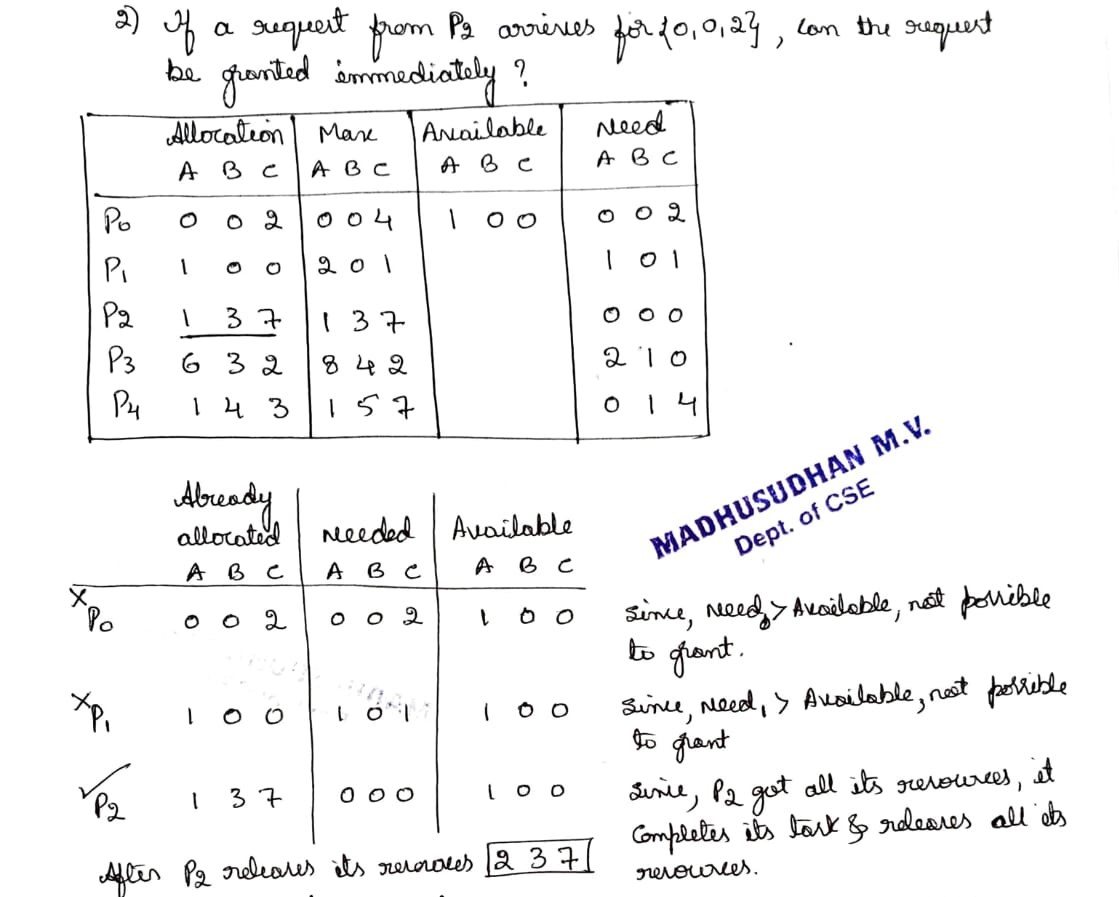 2) If a request from P2 arrives for {0,0,2}, can the request
be granted immediately?
Allocation Max Available Need
A B C A B C A B C A B C
P0 0 0 2 0 0 4 1 0 0 0 0 2
P1 1 0 0 2 0 1 1 0 1
P2 1 3 7 1 3 7 0 0 0
P3 6 3 2 8 4 2 2 1 0
P4 1 4 3 1 5 7 0 1 4
MADHUSUDHAN M.V.
Dept. of CSE
Already
allocated Needed Available
A B C A B C A B C
x P0 0 0 2 0 0 2 1 0 0 Since, Need0 > Available, not possible
to grant.
x P1 1 0 0 1 0 1 1 0 0 Since, Need1 > Available, not possible
to grant
✓ P2 1 3 7 0 0 0 1 0 0 Since, P2 got all its resources, it
Completes its task & releases all its
resources.
After P2 releases its resources 2 3 7